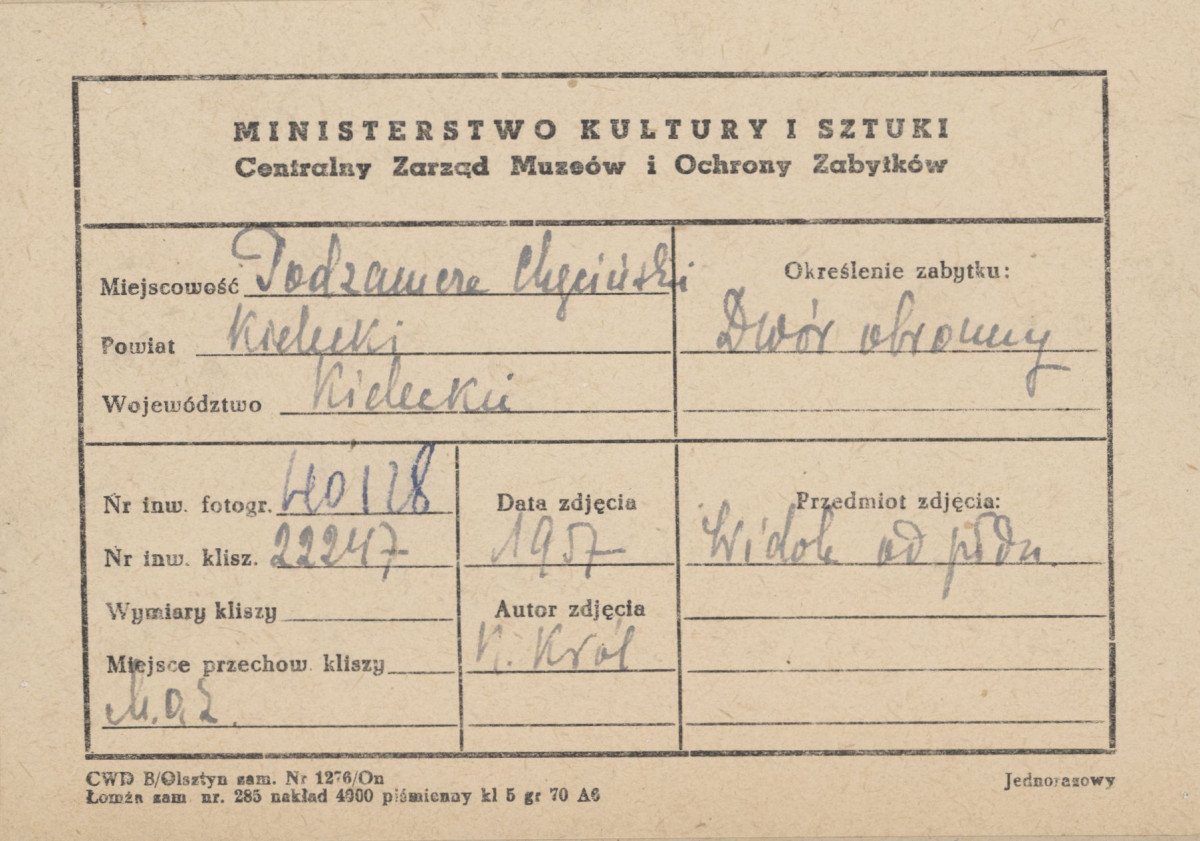 MINISTERSTWO KULTURY I SZTUKI
Centralny Zarząd Muzeów i Ochrony Zabytków
Miejscowość Podzamcze Chęciński
Powiat Kielecki
Województwo Kieleckie
Określenie zabytku:
Dwór obronny
Nr inw. fotogr. 40128
Nr inw. klisz. 22247
Wymiary kliszy
Miejsce przechow. kliszy
M.O.Z.
Data zdjęcia
1957
Autor zdjęcia
K. Król
Przedmiot zdjęcia:
Widok od płdn.
CWD B/Olsztyn zam. Nr 1276/On
Łomża zam nr. 285 nakład 4900 piśmienny kl 5 gr 70 A6
Jednorazowy